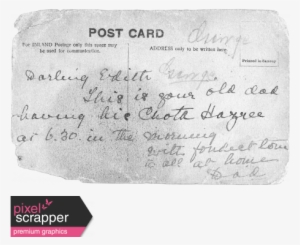 POST CARD
For INLAND Postage only this space may be used for communication.
ADDRESS only to be written here.
Printed in Saxony
George
George
Darling Edith
This is your old dad
having his Chota Hazree
at 6.30 in the morning
with fondest love
to all at home
Dad
pixel
scrapper
premium graphics